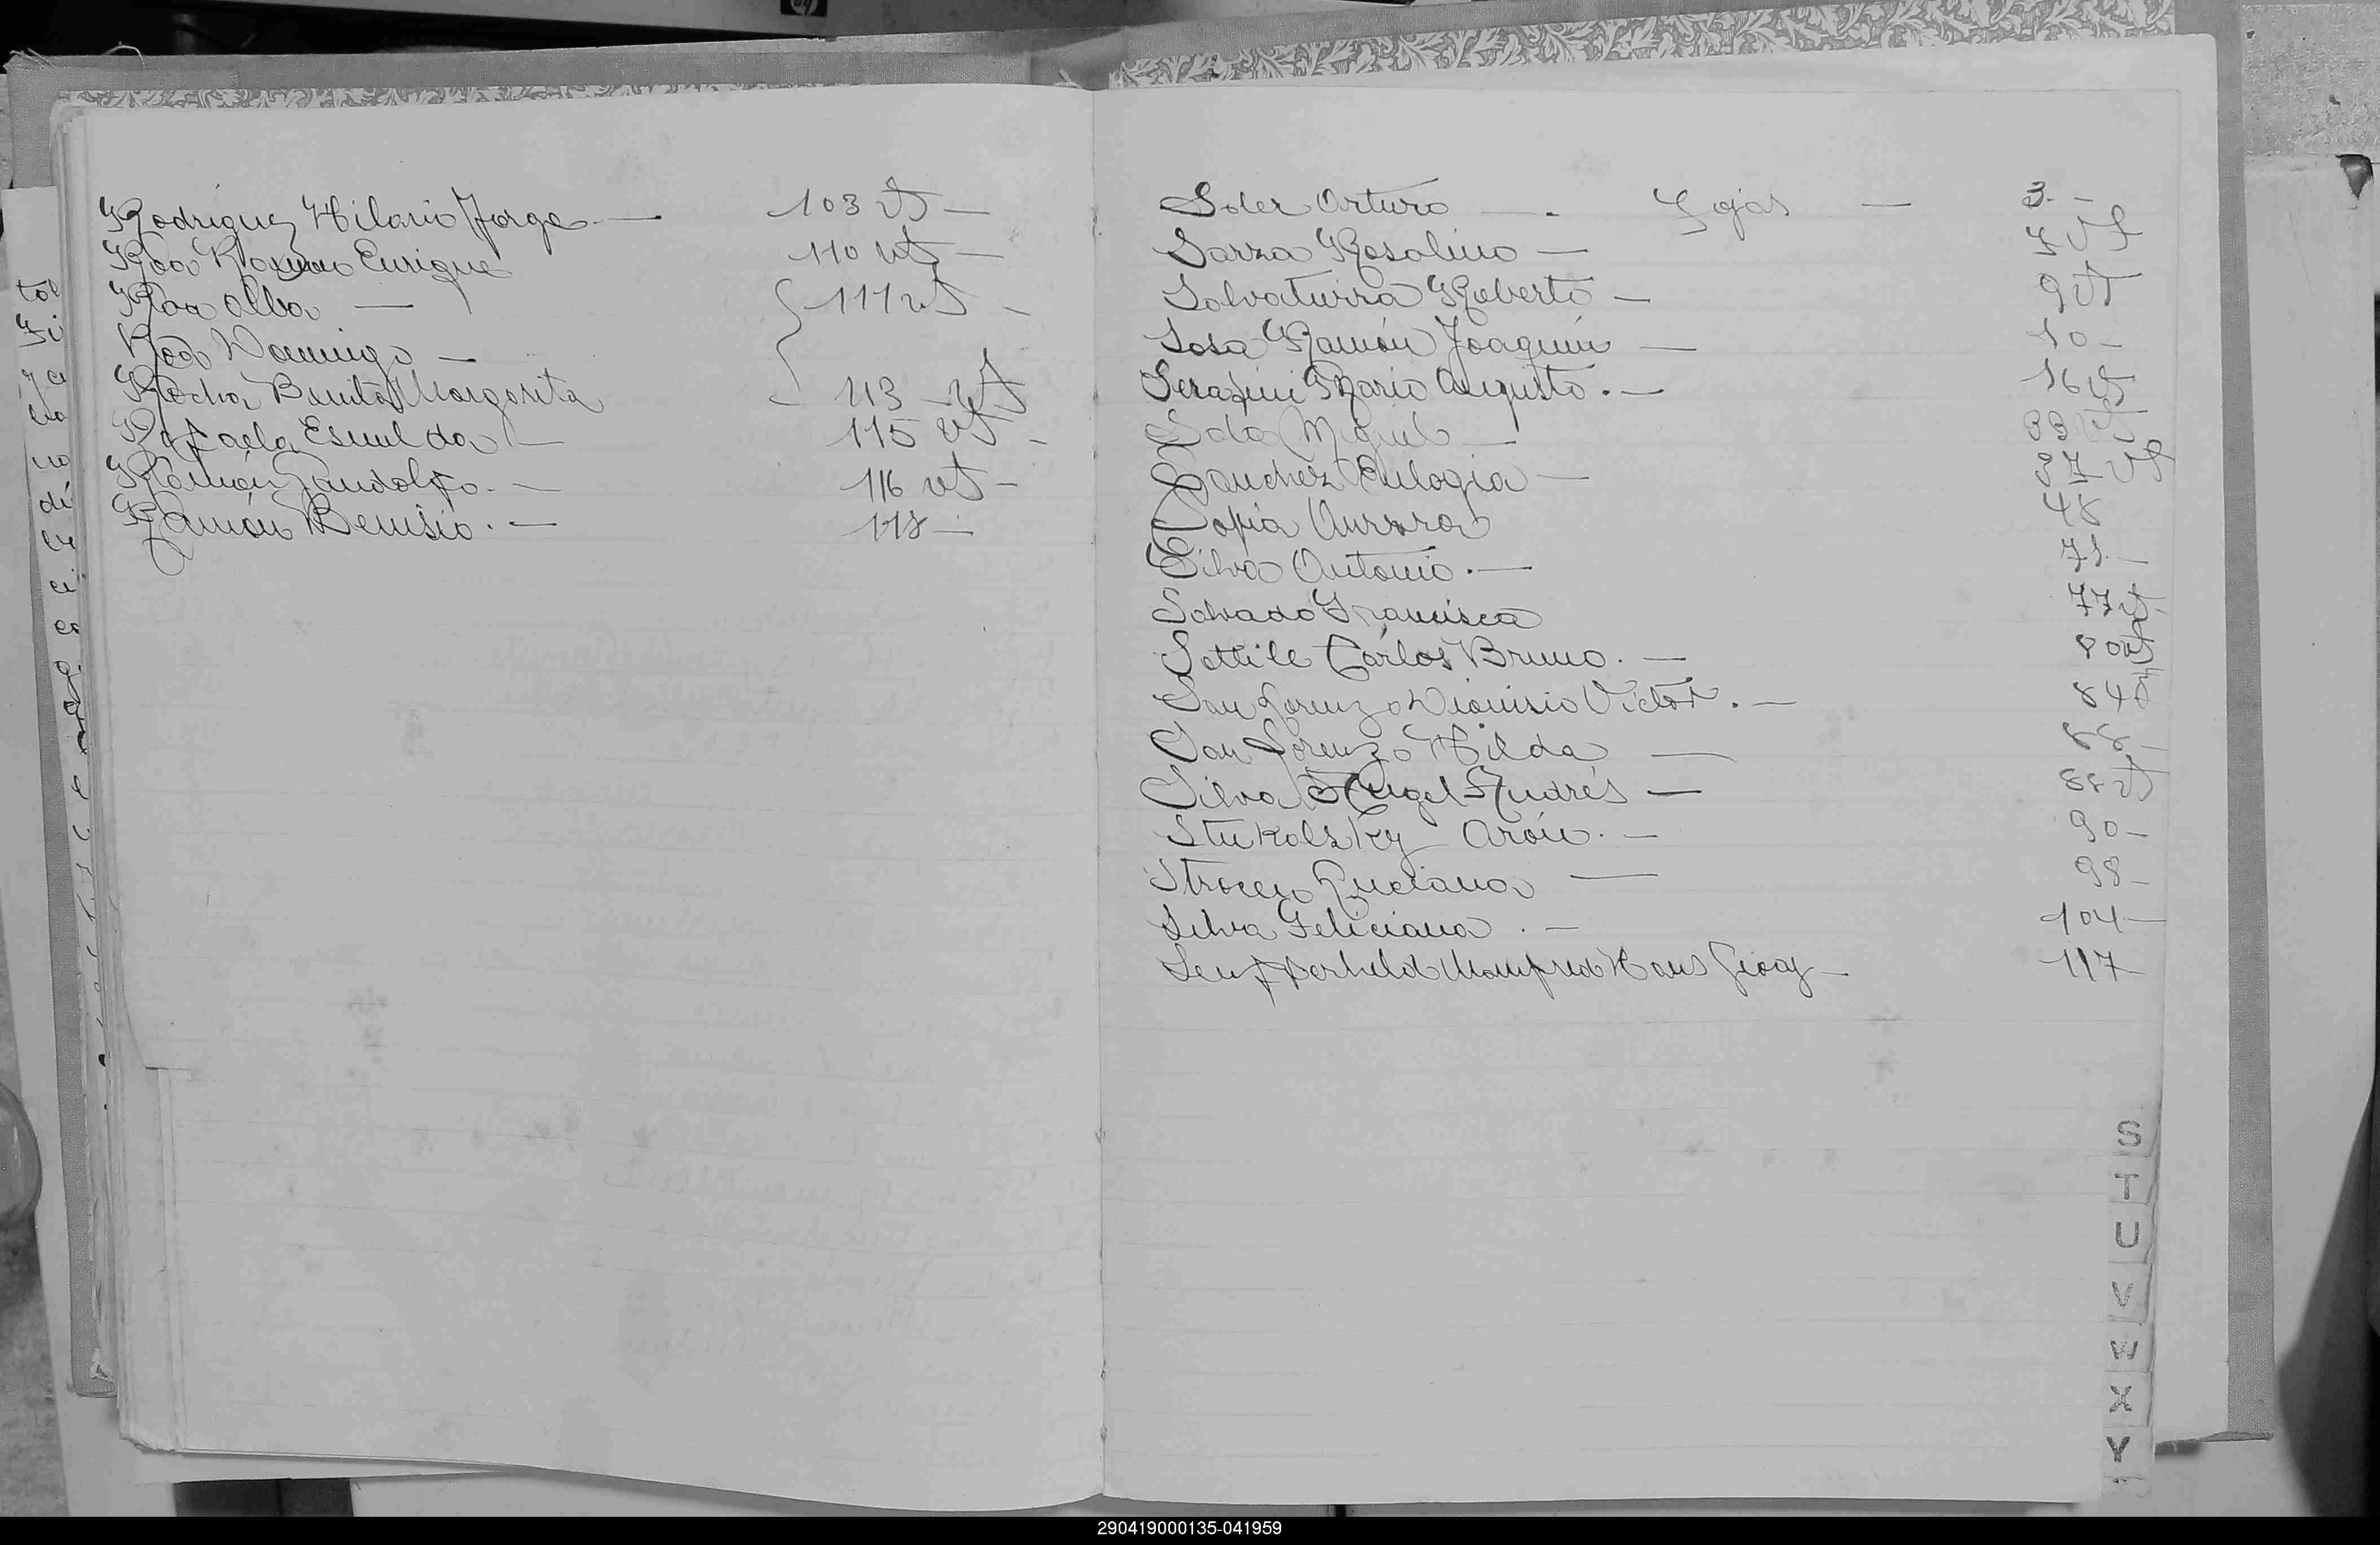 Rodriguez Hilario Jorge — 103 vt —
Roa Enrique 110 vt —
Roa Alba — 111 vt —
Roa Domingo —
Rocha Benita Margarita 113 vt
Rafaela Esmilda — 115 vt —
Ramón Landolfo. — 116 vt —
Ramón Benisio. — 118 —
Soler Arturo —. Fojas — 3. —
Sarza Rosalino — 7 vt
Salvaturra Roberto — 9 vt
Sosa Ramón Joaquin — 10 —
Serafini Mario Augusto. — 16 vt
Miguel — 33 vt
Sanchez Eulogia — 37 vt
Sofia Aurora 48
Silva Antonio. — 71. —
Salvado Francisca 77 vt
Settile Carlos Bruno. — 80 vt
San Lorenzo Dionisio Victor. — 84 vt
San Lorenzo Hilda — 88 —
Silva Angel Andrés — 88 vt
Stukalsky Arón. — 90 —
Luciana — 98 —
Silva Feliciana. — 104 —
Manfred Hans — 117 —
S
T
U
V
W
X
Y
290419000135-041959